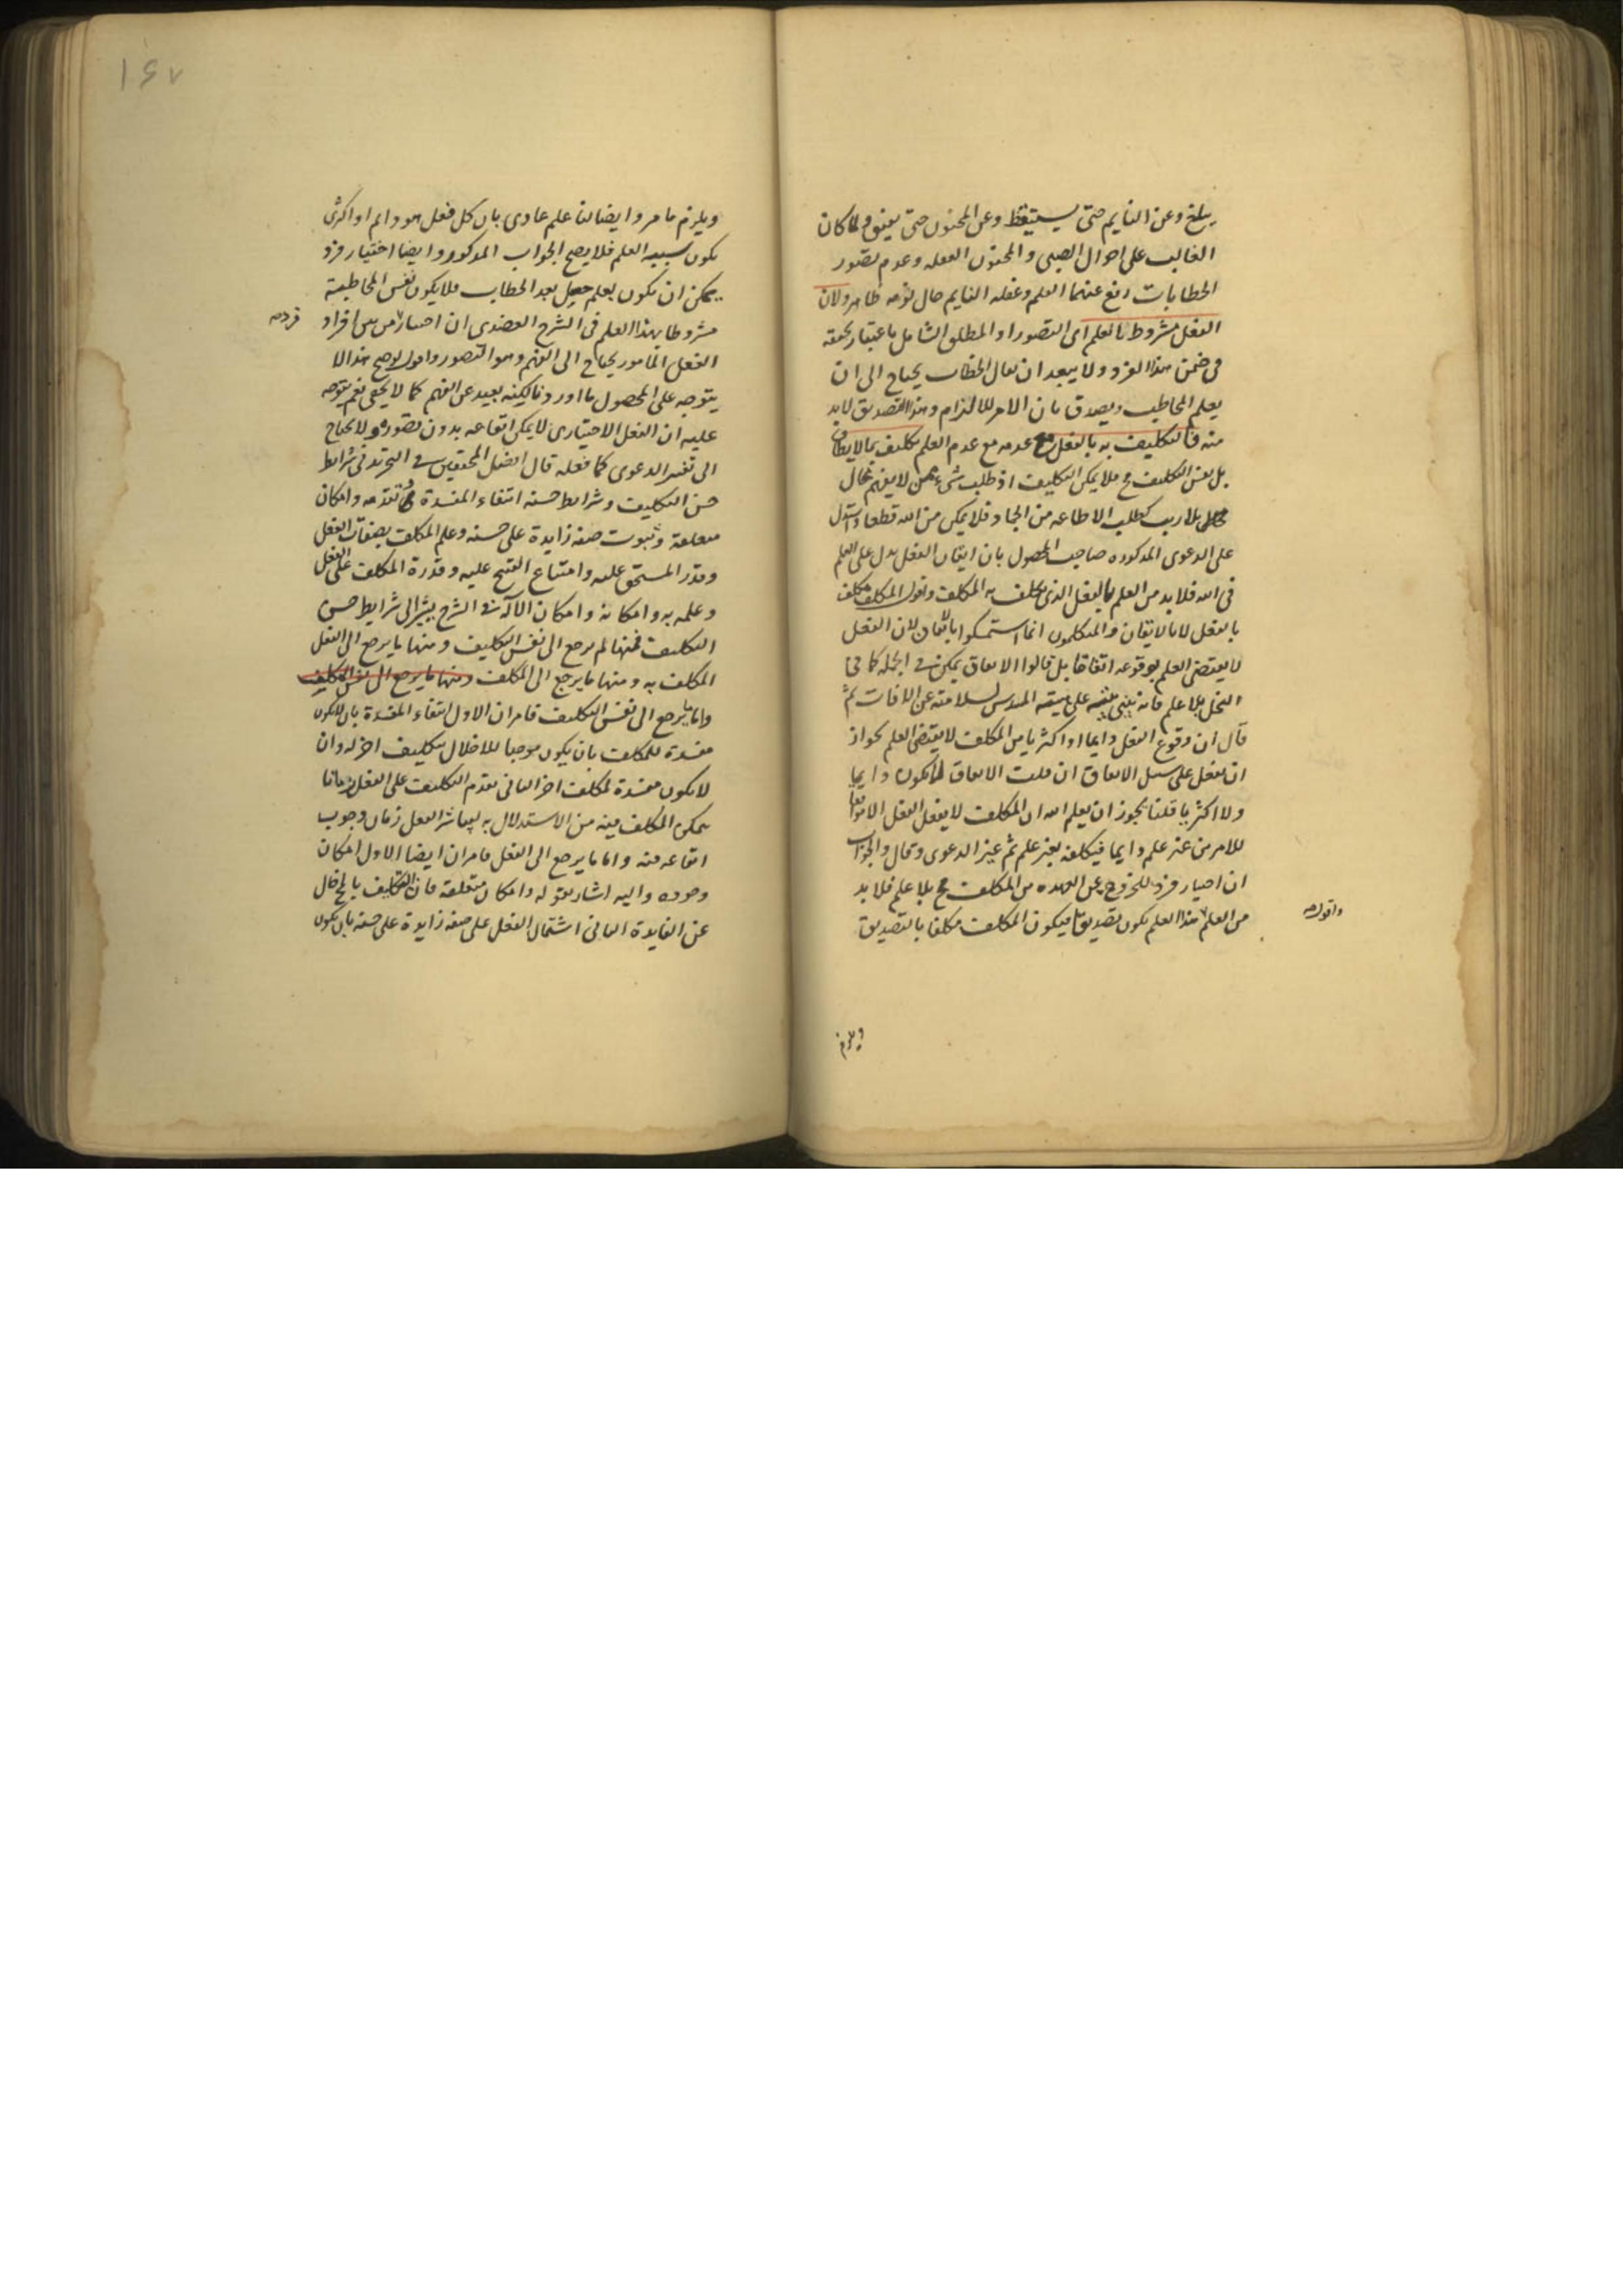 يبلغ وعن النايم حتى يستيقظ وعن المجنون حتى يفيق ولما كان
الغالب على احوال الصبى والمجنون الغفله وعدم تصور
الخطابات رفع عنهما العلم وغفله النايم حال نومه ظاهر ولان
الفعل مشروط بالعلم اى التصور او المطلق الشامل باعتبار تحققه
فى ضمن هذا الفرد ولا يبعد ان يقال الخطاب يحتاج الى ان
يعلم المخاطب ويصدق بان الامر للالزام وهذا التصديق لابد
منه فالتكليف به بالفعل مع عدمه مع عدم العلم تكليف بما لايطاق
بل نفس التكليف ح فلا يمكن التكليف اذ طلب شىء ممن لا يفهم محال
بلا ريب كطلب الاطاعه من الجماد فلا يمكن من الله قطعا واستدل
على الدعوى المذكوره صاحب المحصول بان ايقان الفعل يدل على العلم
فى الله فلا بد من العلم بالفعل الذى يكلف به المكلف ونقول المكلف مكلف
بالفعل لا بالايقان والمتكلمون انما استمسكوا باتقان لان الفعل
لا يقتضى العلم بوقوعه اتفاقا بل قالوا الاتفاق يمكن فى الجمله كما فى
النحل بلا علم فانه يبنى بيته على هيئته المسدس لسلامته عن الافات ثم
قال ان وقوع الفعل دايما او اكثريا من المكلف لا يقتضى العلم لجواز
ان يفعل على سبيل الاتفاق ان قلت الاتفاق لا يكون دايما
ولا اكثريا قلنا يجوز ان يعلم الله ان المكلف لا يفعل الفعل الا موافقا
للامر من غير علم دايما فيكلفه بغير علم ثم غير الدعوى وقال والجواب
ان اختيار فرد للخروج عن العهده من المكلف ح بلا علم فلا بد
من العلم هذا العلم يكون تصديقا فيكون المكلف مكلفا بالتصديق
واقول
ويلزم
١٤٧
ويلزم ما مر وايضا لنا علم عادى بان كل فعل هو دايم او اكثرى
يكون سببه العلم فلا يصح الجواب المذكور وايضا اختيار فرد
يمكن ان يكون بعلم حصل بعد الخطاب فلا يكون نفس المخاطبية
مشروطا بهذا العلم فى الشرح العضدى ان اختيار من بين افراد
فرد
الفعل المامور يحتاج الى الفهم وهو التصور واقول توضيح هذا لا
يتوجه على المحصول ما اورد نا لكنه بعيد عن الفهم كما لا يخفى نعم يتوجه
عليه ان الفعل الاختيارى لا يمكن ايقاعه بدون تصوره ولا يحتاج
الى تغيير الدعوى كما فعله قال افضل المحققين فى التجريد فى شرايط
حسن التكليف وشرايط حسنه انتفاء المفسدة وتقدمه وامكان
متعلقه وثبوت صفه زايدة على حسنه وعلم المكلف بصفات الفعل
وقدر المستحق عليه وامتناع القبح عليه وقدرة المكلف على الفعل
وعلمه به وامكانه وامكان الآلة فى الشرح يشير الى شرايط حسن
التكليف فمنها لم يرجع الى نفس التكليف ومنها ما يرجع الى الفعل
المكلف به ومنها ما يرجع الى المكلف ومنها ما يرجع الى نفس التكليف
واما ما يرجع الى نفس التكليف فامران الاول انتفاء المفسدة بان لا يكون
مفسدة للمكلف بان يكون موجبا للاخلال بتكليف اخر له وان
لا يكون مفسدة لمكلف اخر الثانى تقدم التكليف على الفعل زمانا
يتمكن المكلف فيه من الاستدلال به ليباشر الفعل زمان وجوب
ايقاعه فيه واما ما يرجع الى الفعل فامران ايضا الاول امكان
وجوده واليه اشار بقوله وامكان متعلقه فان التكليف بالمحال خال
عن الفايدة الثانى اشتمال الفعل على صفه زايدة على حسنه بان يكون